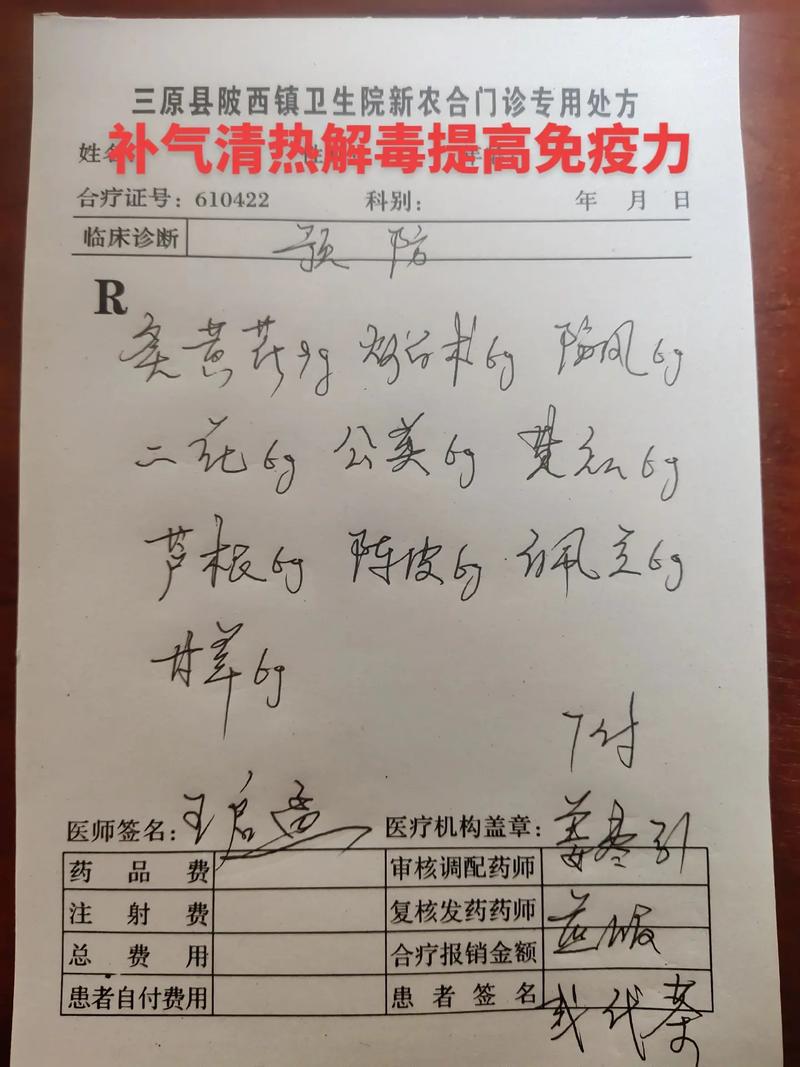 三原县陂西镇卫生院新农合门诊专用处方
补气清热解毒提高免疫力
姓名
合疗证号：610422 科别： 年 月 日
临床诊断 预防
R
炙黄芪9g 炒白术6g 防风6g
二花6g 公英6g 贯众6g
芦根6g 陈皮6g 佩兰6g
甘草6g
7付
医师签名： 医疗机构盖章： 姜枣引
药品费 审核调配药师
注射费 复核发药药师 煎服
总费用 合疗报销金额
患者自付费用 患者签名 或代茶